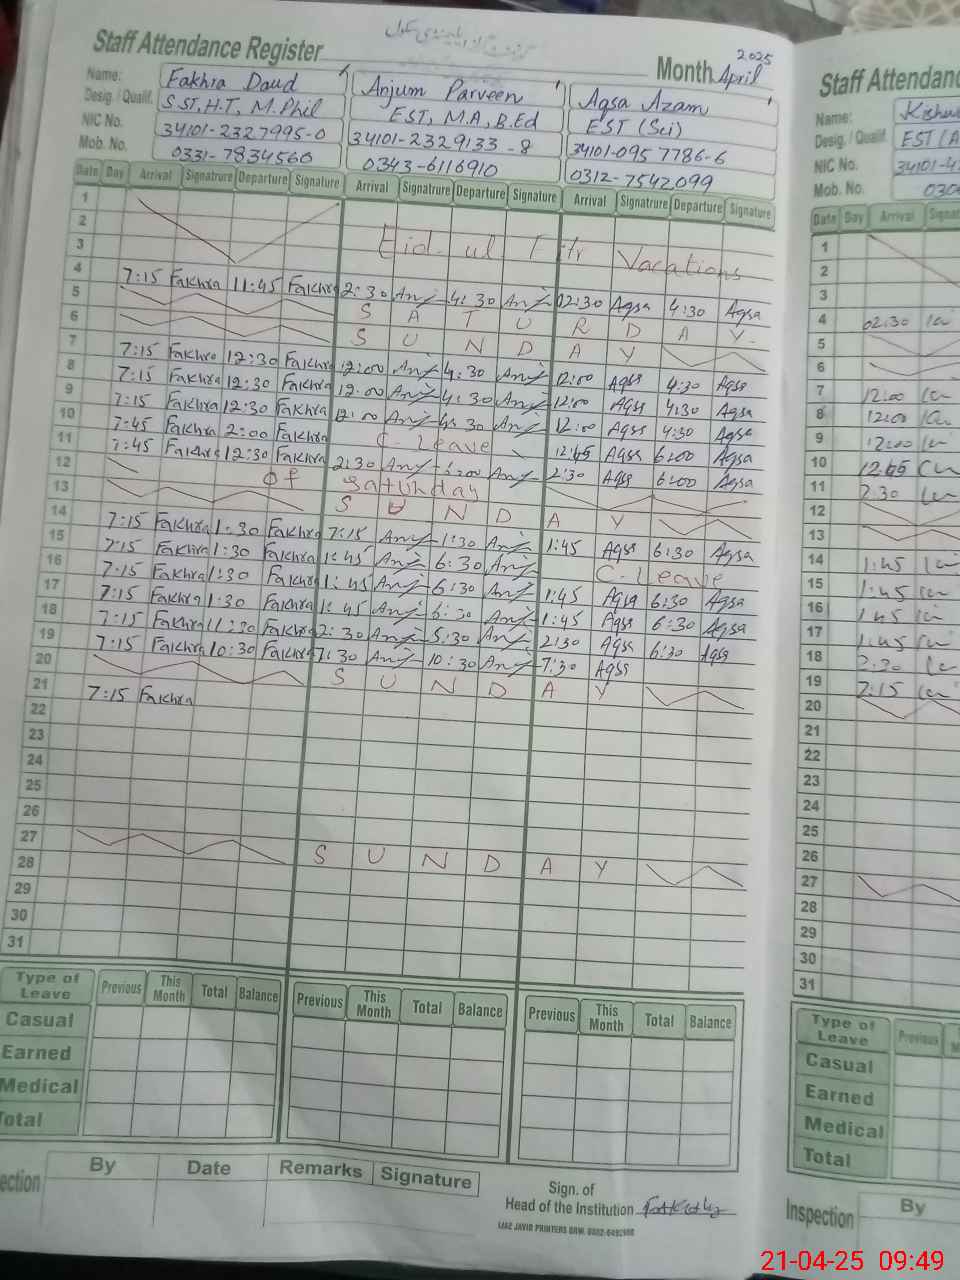 Staff Attendance Register
Month April 2025
Name: Fakhra Daud Anjum Parveen Aqsa Azam
Desig. / Qualif. SST, H.T, M.Phil EST, M.A, B.Ed EST (Sci)
NIC No. 34101-2327995-0 34101-2329133-8 34101-095 7786-6
Mob. No. 0331-7834560 0343-6116910 0312-7542099
Date Day Arrival Signatrure Departure Signature Arrival Signatrure Departure Signature Arrival Signatrure Departure Signature
1
2
3 Eid-ul Fitr Vacations
4 7:15 Fakhra 11:45 Fakhra 2:30 Anj 4:30 Anj 02:30 Aqsa 4:30 Aqsa
5 S A T U R D A Y
6 S U N D A Y
7 7:15 Fakhra 12:30 Fakhra 12:00 Anj 4:30 Anj 12:00 Aqsa 4:30 Aqsa
8 7:15 Fakhra 12:30 Fakhra 12:00 Anj 4:30 Anj 12:00 Aqsa 4:30 Aqsa
9 7:15 Fakhra 12:30 Fakhra 12:00 Anj 4:30 Anj 12:00 Aqsa 4:30 Aqsa
10 7:45 Fakhra 2:00 Fakhra C-Leave 12:45 Aqsa 6:00 Aqsa
11 7:45 Fakhra 12:30 Fakhra 2:30 Anj 6:00 Anj 2:30 Aqsa 6:00 Aqsa
12 Of Saturday
13 S U N D A Y
14 7:15 Fakhra 1:30 Fakhra 7:15 Anj 1:30 Anj 1:45 Aqsa 6:30 Aqsa
15 7:15 Fakhra 1:30 Fakhra 1:45 Anj 6:30 Anj C-Leave
16 7:15 Fakhra 1:30 Fakhra 1:45 Anj 6:30 Anj 1:45 Aqsa 6:30 Aqsa
17 7:15 Fakhra 1:30 Fakhra 1:45 Anj 6:30 Anj 1:45 Aqsa 6:30 Aqsa
18 7:15 Fakhra 11:30 Fakhra 2:30 Anj 5:30 Anj 2:30 Aqsa 6:30 Aqsa
19 7:15 Fakhra 10:30 Fakhra 7:30 Anj 10:30 Anj 7:30 Aqsa
20 S U N D A Y
21 7:15 Fakhra
22
23
24
25
26
27 S U N D A Y
28
29
30
31
Type of Leave Previous This Month Total Balance Previous This Month Total Balance Previous This Month Total Balance
Casual
Earned
Medical
Total
ection By Date Remarks Signature
Sign. of
Head of the Institution
Staff Attendan
Name:
Desig. / Qualif. EST
NIC No. 34101-4
Mob. No. 030
Date Day Arrival Signat
1
2
3
4 02:30
5
6
7 12:00
8 12:00
9 12:00
10 12:45
11 2:30
12
13
14 1:45
15 1:45
16 1:45
17 1:45
18 2:30
19 7:15
20
21
22
23
24
25
26
27
28
29
30
31
Type of Leave Previous M
Casual
Earned
Medical
Total
Inspection By
21-04-25 09:49